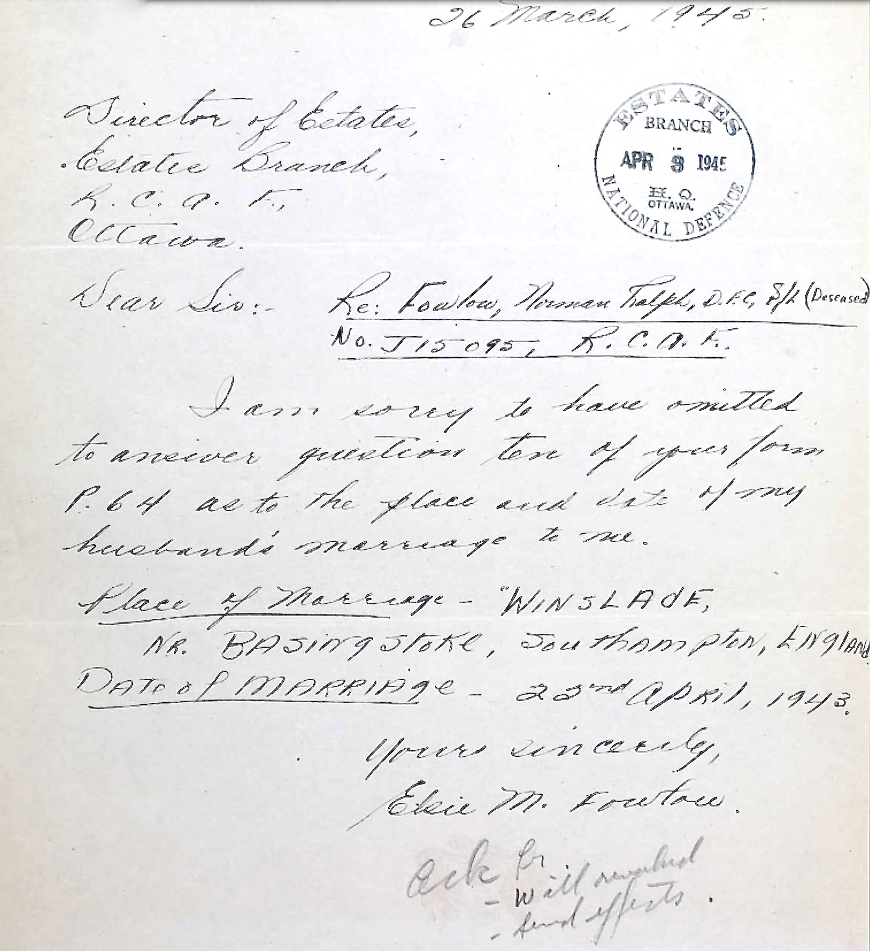 26 March, 1945.
ESTATES
BRANCH
APR 3 1945
H. Q.
OTTAWA.
NATIONAL DEFENCE
Director of Estates,
Estates Branch,
R. C. A. F.,
Ottawa.
Dear Sir:- Re: Fowlow, Norman Ralph, D.F.C, S/L (Deceased)
No. J15095, R. C. A. F.
I am sorry to have omitted
to answer question ten of your form
P. 64 as to the place and date of my
husband's marriage to me.
Place of Marriage - "WINSLADE,
NR. BASINGSTOKE, Southampton, ENGLAND
DATE of MARRIAGE - 22nd April, 1943.
Yours sincerely,
Elsie M. Fowlow.
Ack
- Will
- send effects.